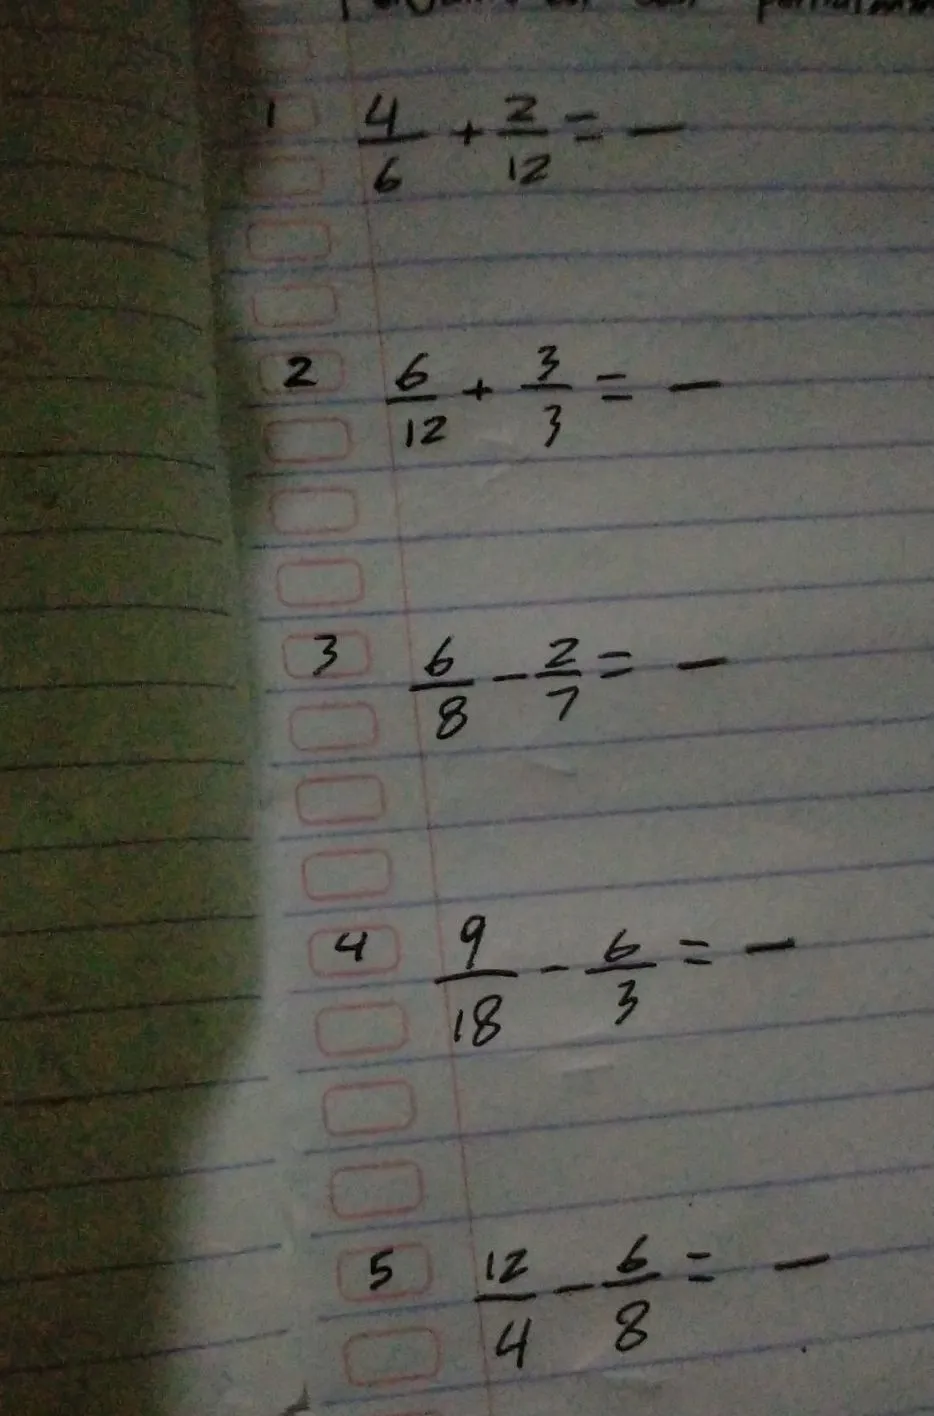 1 4/6 + 2/12 = —
2 6/12 + 3/3 = —
3 6/8 - 2/7 = —
4 9/18 - 6/3 = —
5 12/4 - 6/8 = —